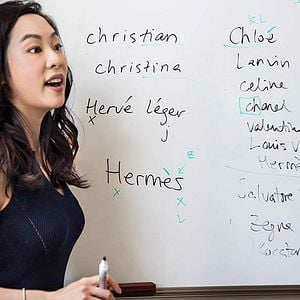 christian
christina
Hervé léger
x j
z
Hermes
x x
L
KL
Chloé
Lanvin
celine
chanel
valentin
Louis V
Herme
Salvatore
Zegna